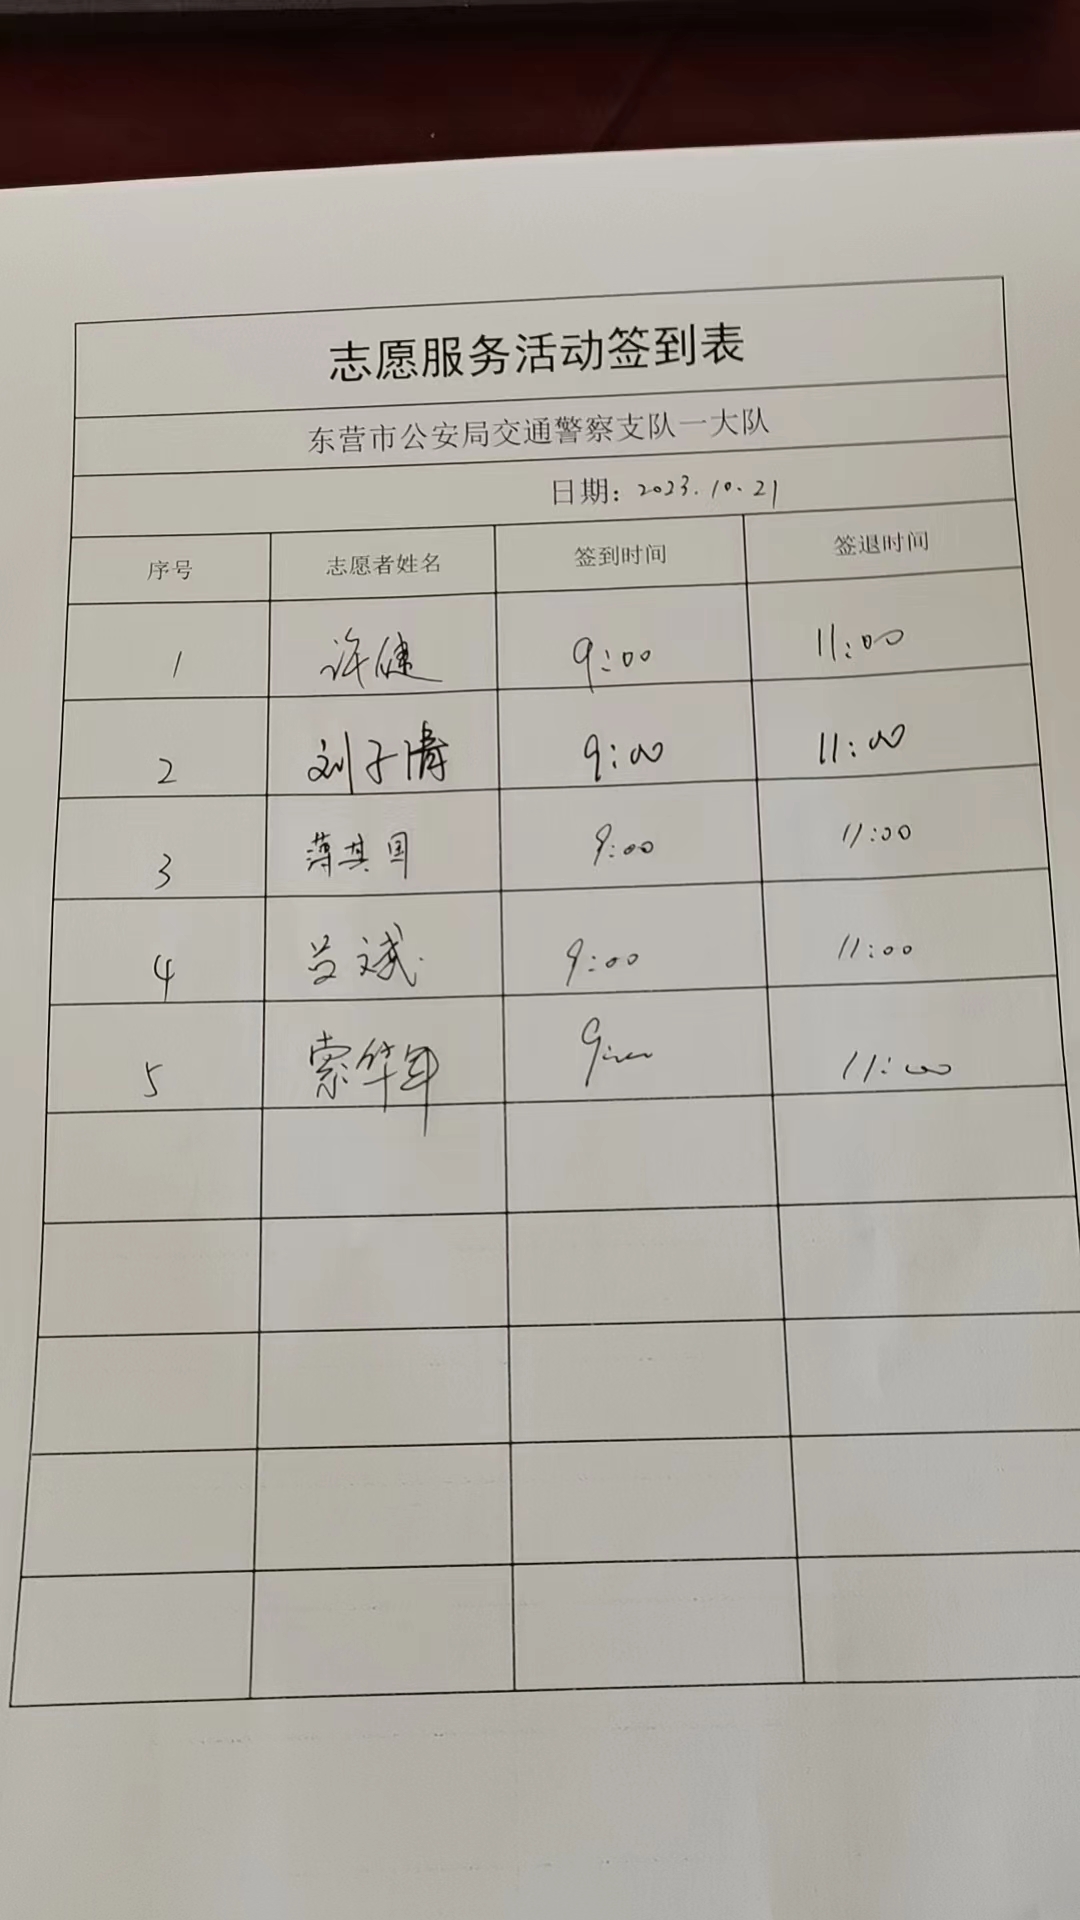 志愿服务活动签到表
东营市公安局交通警察支队一大队
日期：2023.10.21
序号 志愿者姓名 签到时间 签退时间
1 许健 9:00 11:00
2 刘子涛 9:00 11:00
3 薄其国 9:00 11:00
4 吕斌 9:00 11:00
5 索华军 9:00 11:00